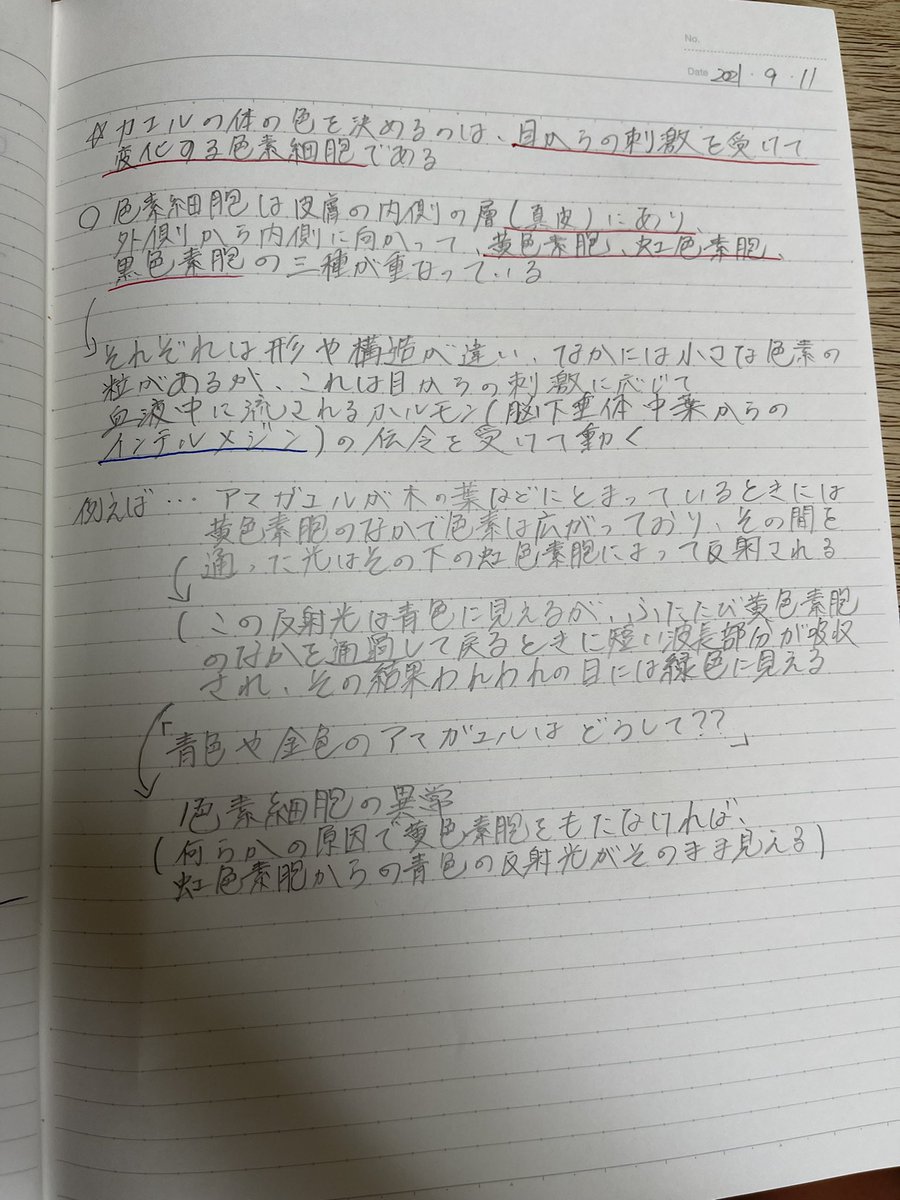 No.
Date 2021・9・11
☆カエルの体の色を決めるのは、目からの刺激を受けて
変化する色素細胞である
○ 色素細胞は皮膚の内側の層(真皮)にあり、
外側から内側に向かって、黄色素胞、虹色素胞、
黒色素胞の三種が重なっている
それぞれは形や構造が違い、なかには小さな色素の
粒があるが、これは目からの刺激に応じて
血液中に流されるホルモン(脳下垂体中葉からの
インテルメジン)の伝令を受けて動く
例えば… アマガエルが木の葉などにとまっているときには
黄色素胞のなかで色素は広がっており、その間を
通った光はその下の虹色素胞によって反射される
(この反射光は青色に見えるが、ふたたび黄色素胞
のなかを通過して戻るときに短い波長部分が吸収
され、その結果われわれの目には緑色に見える
「青色や金色のアマガエルはどうして??」
色素細胞の異常
(何らかの原因で黄色素胞をもたなければ、
虹色素胞からの青色の反射光がそのまま見える)